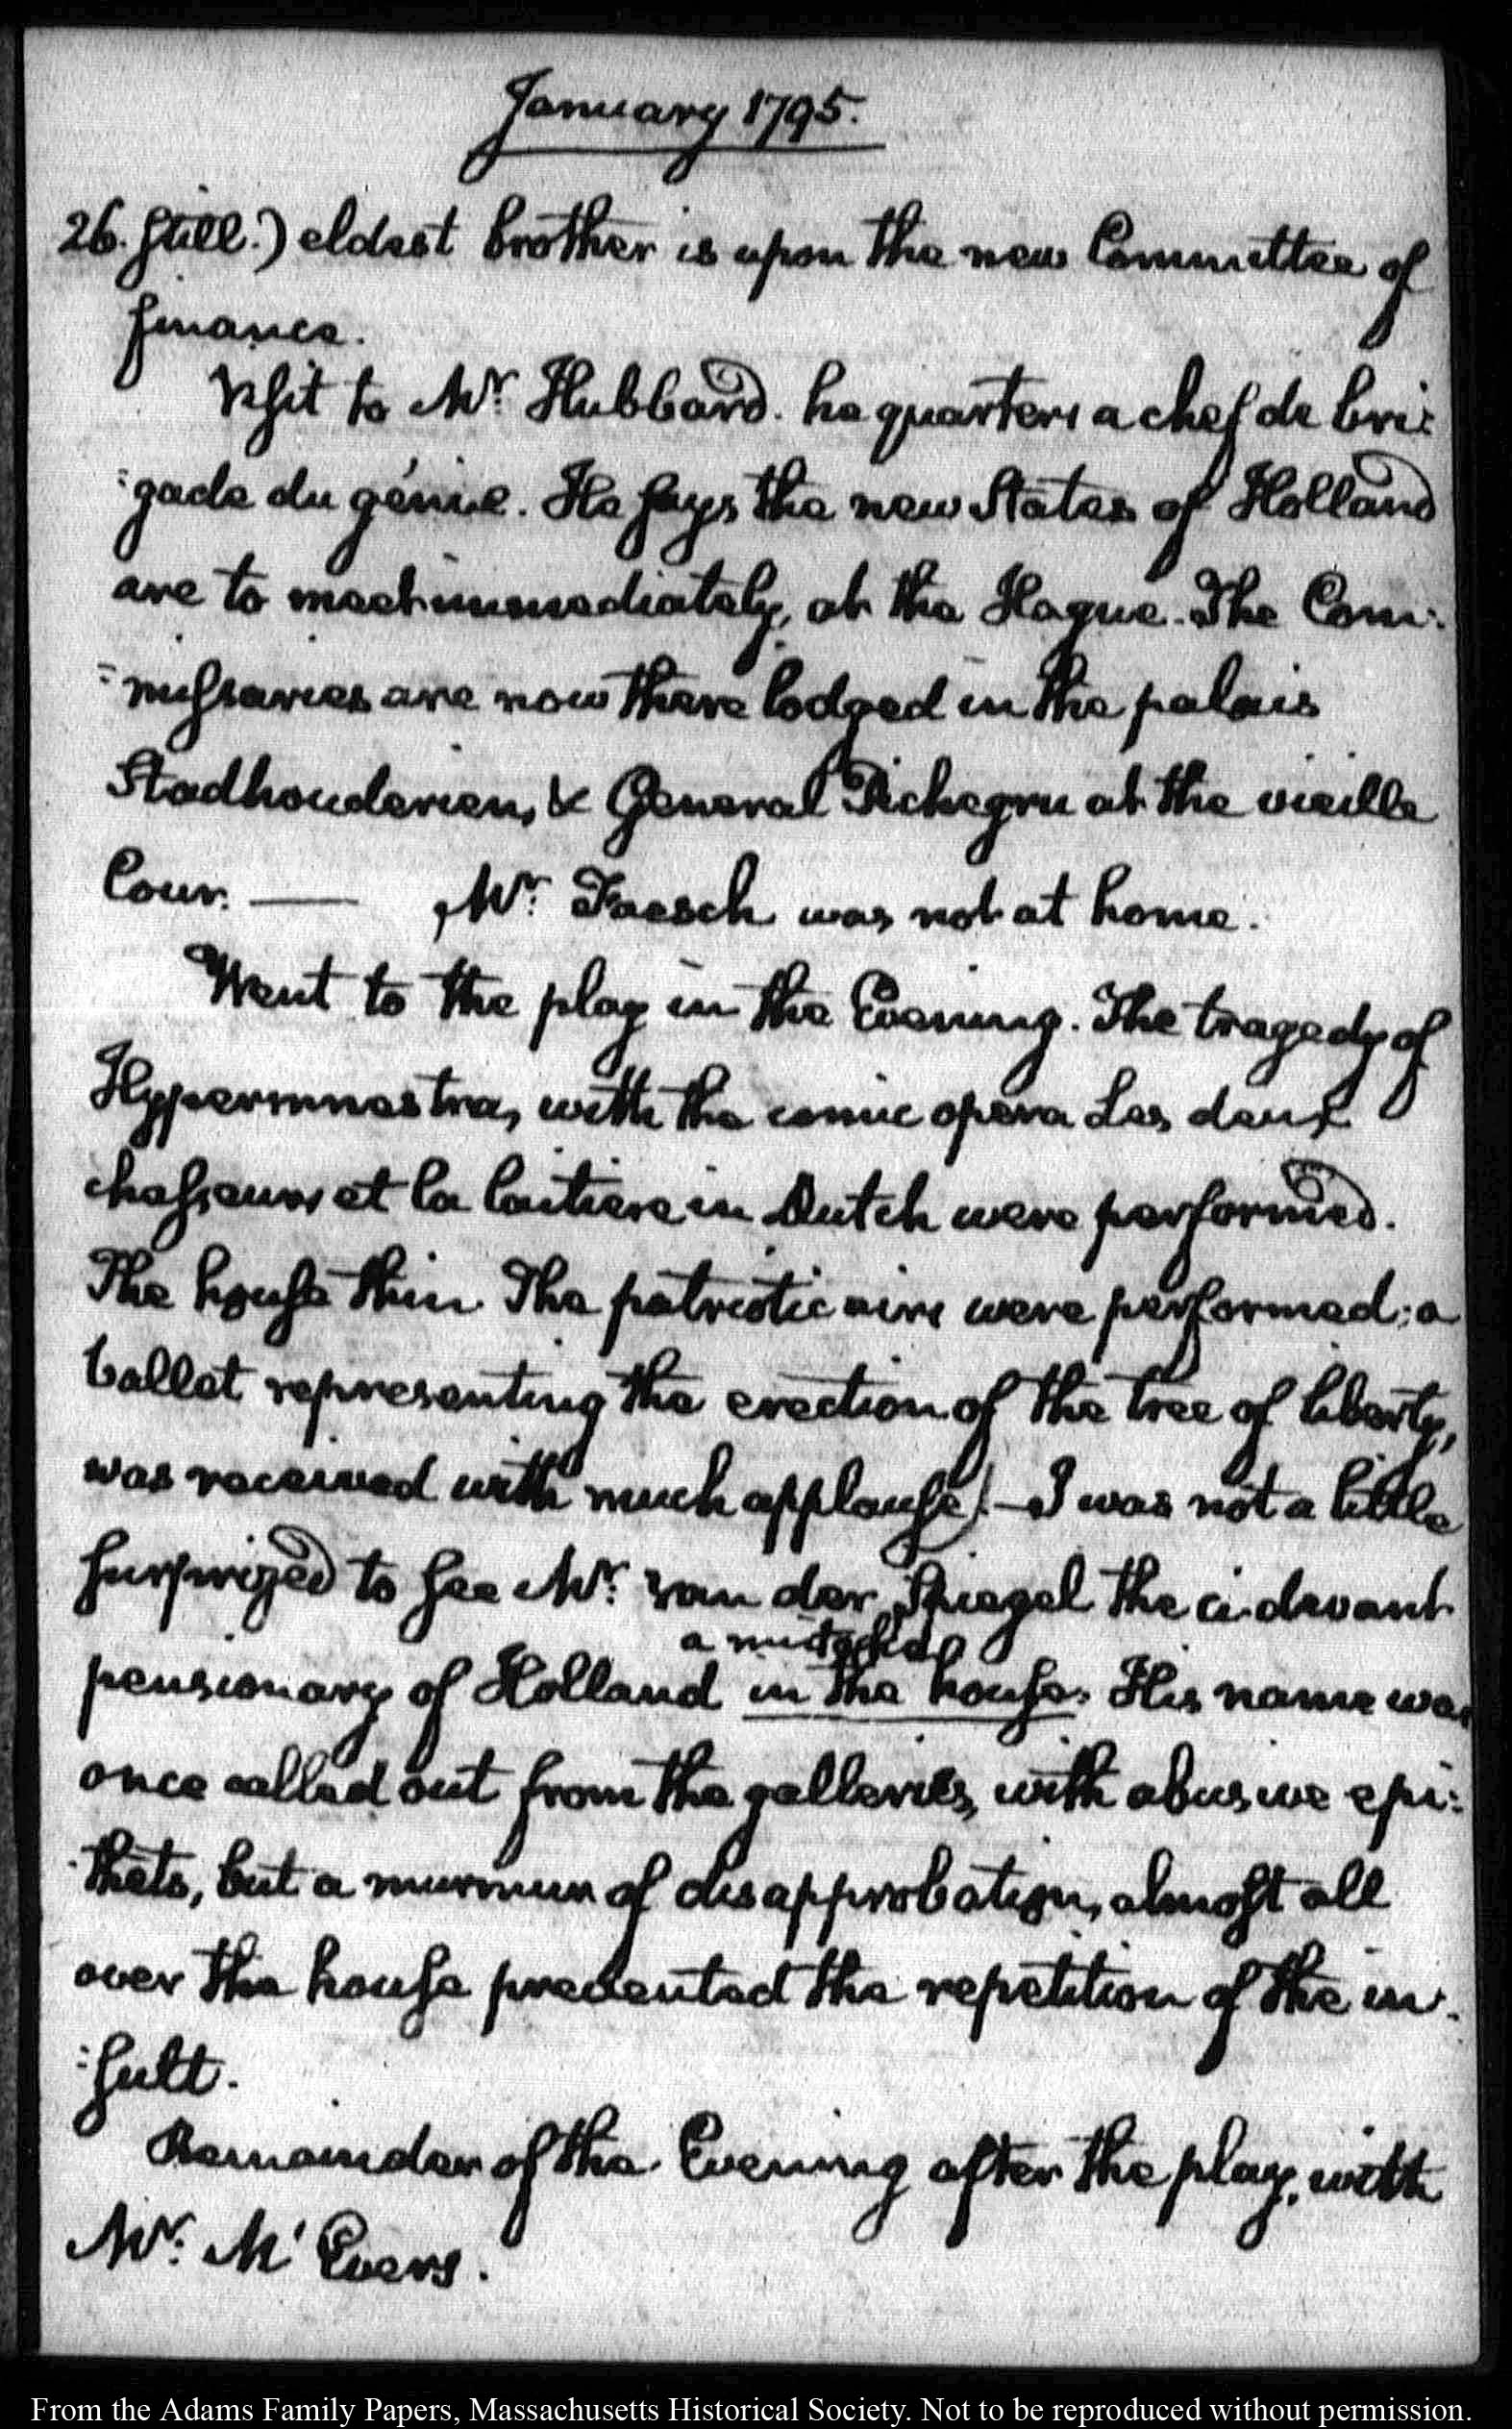 January 1795.
26. still.) eldest brother is upon the new Committee of
finance.
Visit to Mr. Hubbard. he quarters a chef de bri-
:gade du génie. He says the new States of Holland
are to meet immediately, at the Hague. The Com:
:missaries are now there lodged in the palais
Stadhouderien, & General Pichegru at the vieille
Cour. — Mr. Faesch was not at home.
Went to the play in the Evening. The tragedy of
Hypermnestra, with the comic opera Les deux
chasseurs et la laitiere in Dutch were performed.
The house thin. The patriotic airs were performed; a
ballet representing the erection of the tree of liberty,
was received with much applause!—I was not a little
surprized to see Mr. van der Spiegel the ci-devant
a mistake
pensionary of Holland in the house. His name was
once called out from the galleries, with abusive epi:
:thets, but a murmur of disapprobation, almost all
over the house prevented the repetition of the in:
:sult.
Remainder of the Evening after the play, with
Mr. Mc Evers.
From the Adams Family Papers, Massachusetts Historical Society. Not to be reproduced without permission.